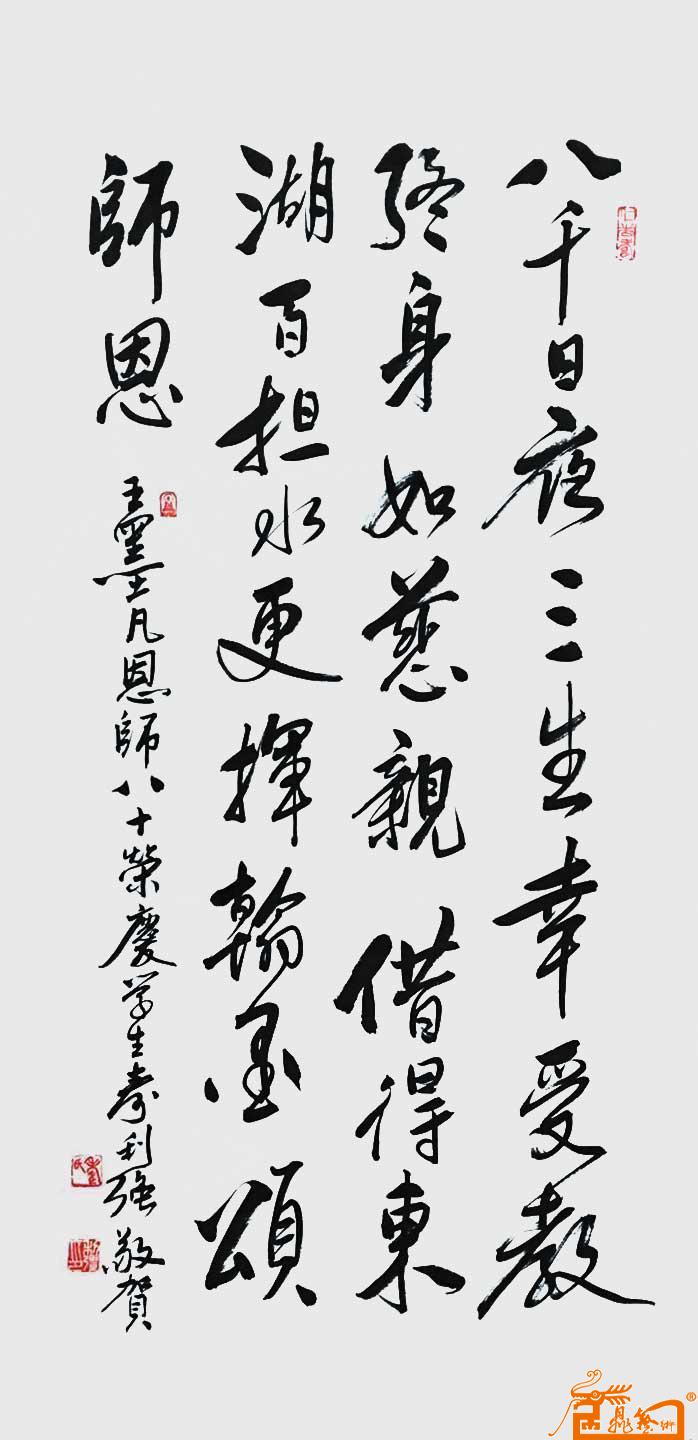 八千日夜三生幸受教
終身如慈親借得東
湖百担水更揮翰墨頌
師恩
王墨凡恩師八十榮慶学生秦利強敬賀